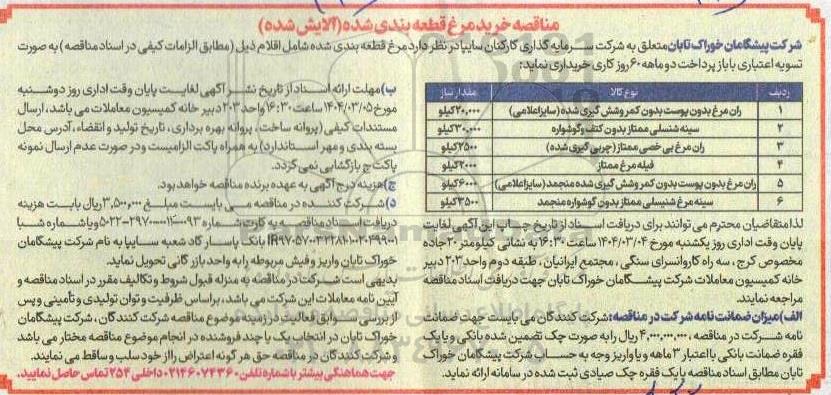 مناقصه خرید مرغ قطعه بندی شده (آلایش شده)
شرکت پیشگامان خوراک تابان متعلق به شرکت سرمایه گذاری کارکنان سایپا در نظر دارد مرغ قطعه بندی شده شامل اقلام ذیل (مطابق الزامات کیفی در اسناد مناقصه) به صورت
تسویه اعتباری با باز پرداخت دو ماهه ۶۰ روز کاری خریداری نماید:
ردیف نوع کالا مقدار نیاز
۱ ران مرغ بدون پوست بدون کمر وشش گیری شده (سایز اعلامی) ۲۰,۰۰۰ کیلو
۲ سینه شنسلی ممتاز بدون کتف و گوشواره ۳۰,۰۰۰ کیلو
۳ ران مرغ بی خصی ممتاز (چربی گیری شده) ۲۵۰۰ کیلو
۴ فیله مرغ ممتاز ۲۰۰۰ کیلو
۵ ران مرغ بدون پوست بدون کمر وشش گیری شده منجمد (سایز اعلامی) ۶۰۰۰ کیلو
۶ سینه مرغ شنیسلی ممتاز بدون گوشواره منجمد ۳۵۰۰ کیلو
لذا متقاضیان محترم می توانند برای دریافت اسناد از تاریخ چاپ این آگهی لغایت
پایان وقت اداری روز یکشنبه مورخ ۱۴۰۴/۰۳/۰۴ ساعت ۱۶:۳۰ به نشانی کیلومتر ۲۰ جاده
مخصوص کرج، سه راه کاروانسرای سنگی، مجتمع ایرانیان، طبقه دوم واحد ۲۰۳ دبیر
خانه کمیسیون معاملات شرکت پیشگامان خوراک تابان جهت دریافت اسناد مناقصه
مراجعه نمایند.
الف) میزان ضمانت نامه شرکت در مناقصه: شرکت کنندگان می بایست جهت ضمانت
نامه شرکت در مناقصه، ۴,۰۰۰,۰۰۰,۰۰۰ ریال را به صورت چک تضمین شده بانکی و یا یک
فقره ضمانت بانکی با اعتبار ۳ ماهه و یا واریز وجه به حساب شرکت پیشگامان خوراک
تابان مطابق اسناد مناقصه یا یک فقره چک صیادی ثبت شده در سامانه ارائه نماید.
ب) مهلت ارائه اسناد از تاریخ نشر آگهی لغایت پایان وقت اداری روز دوشنبه
مورخ ۱۴۰۴/۰۳/۰۵ ساعت ۱۶:۳۰ واحد ۲۰۳ دبیر خانه کمیسیون معاملات می باشد، ارسال
مستندات کیفی (پروانه ساخت، پروانه بهره برداری، تاریخ تولید و انقضاء، آدرس محل
بسته بندی و مهر استاندارد) به همراه پاکت الزامیست و در صورت عدم ارسال نمونه
پاکت ج بازگشایی نمی گردد.
ج) هزینه درج آگهی به عهده برنده مناقصه خواهد بود.
د) شرکت کننده در مناقصه می بایست مبلغ ۳,۵۰۰,۰۰۰ ریال بابت هزینه
دریافت اسناد مناقصه به کارت شماره و یا شماره شبا
بانک پاسارگاد شعبه سایپا به نام شرکت پیشگامان
خوراک تابان واریز و فیش مربوطه را به واحد بازرگانی تحویل نماید.
بدیهی است شرکت در مناقصه به منزله قبول شروط و تکالیف مقرر در اسناد مناقصه و
آیین نامه معاملات این شرکت می باشد، بر اساس ظرفیت و توان تولیدی و تأمینی و پس
از بررسی سوابق فعالیت در زمینه موضوع مناقصه شرکت کنندگان، شرکت پیشگامان
خوراک تابان در انتخاب یک یا چند فروشنده در انجام موضوع مناقصه مختار می باشد
و شرکت کنندگان در مناقصه حق هر گونه اعتراض را از خود سلب و ساقط می نمایند.
جهت هماهنگی بیشتر با شماره تلفن ۰۲۱۴۶۰۷۴۳۶۰ داخلی ۲۵۴ تماس حاصل نمایید.